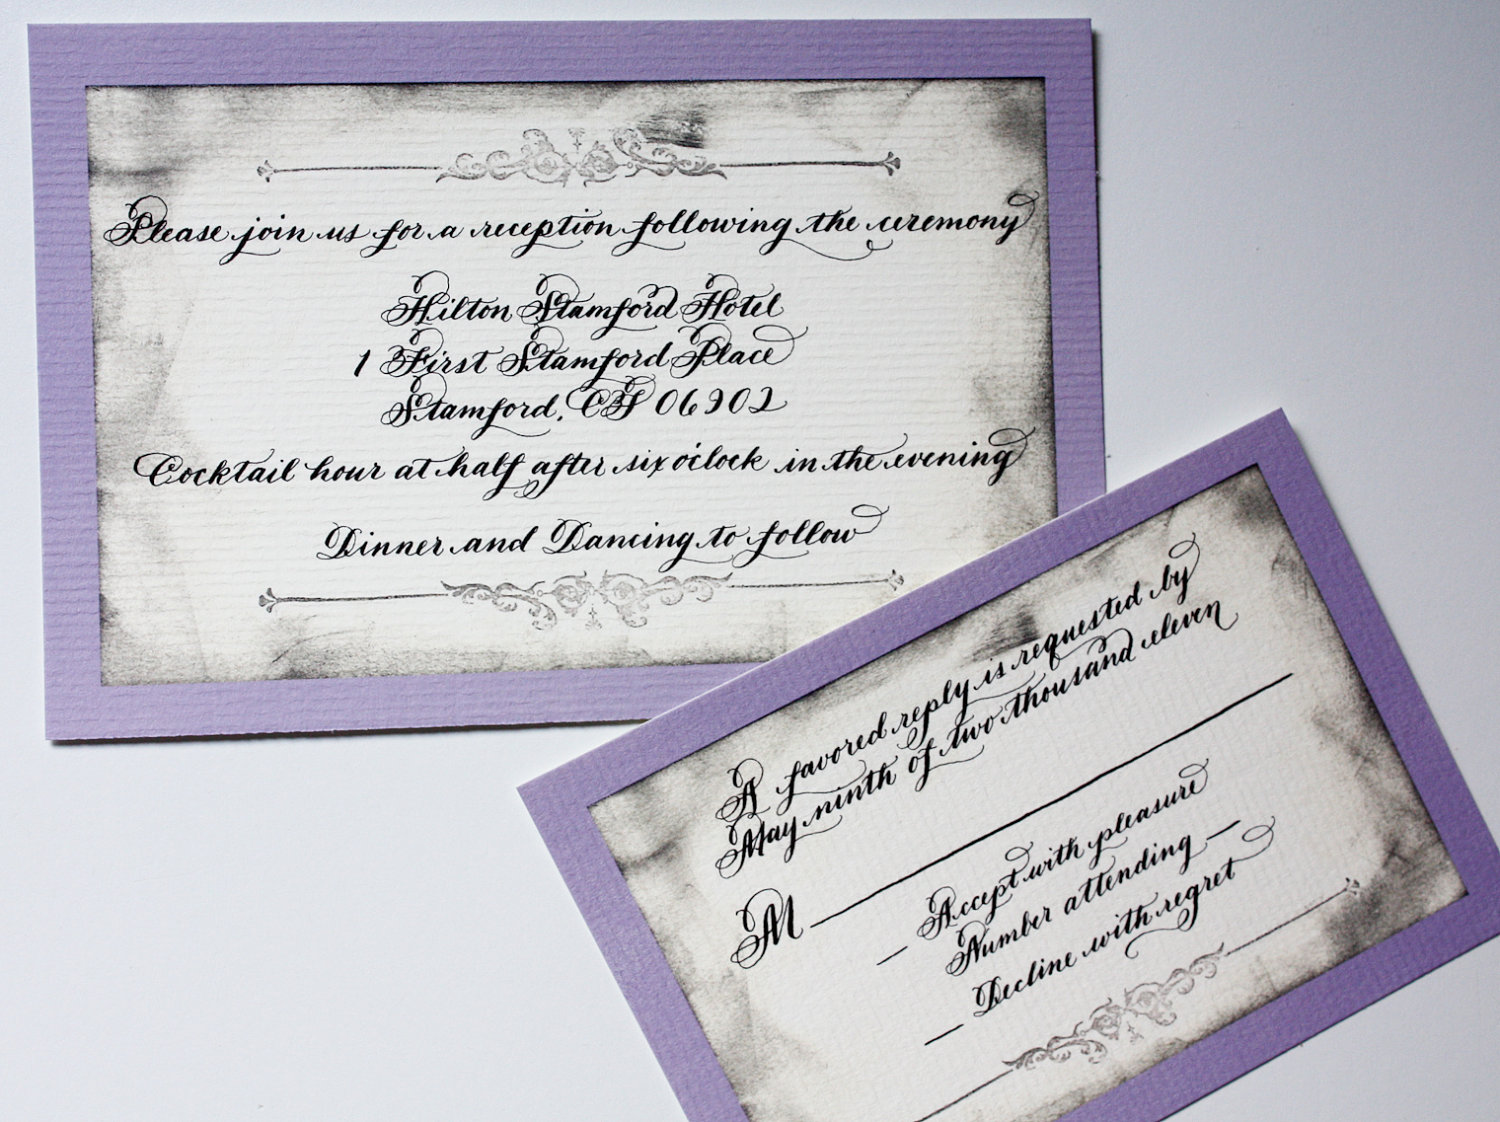 Please join us for a reception following the ceremony
Hilton Stamford Hotel
1 First Stamford Place
Stamford, CT 06902
Cocktail hour at half after six o'clock in the evening
Dinner and Dancing to follow
A favored reply is requested by
May ninth of two thousand eleven
M
Accept with pleasure
Number attending
Decline with regret